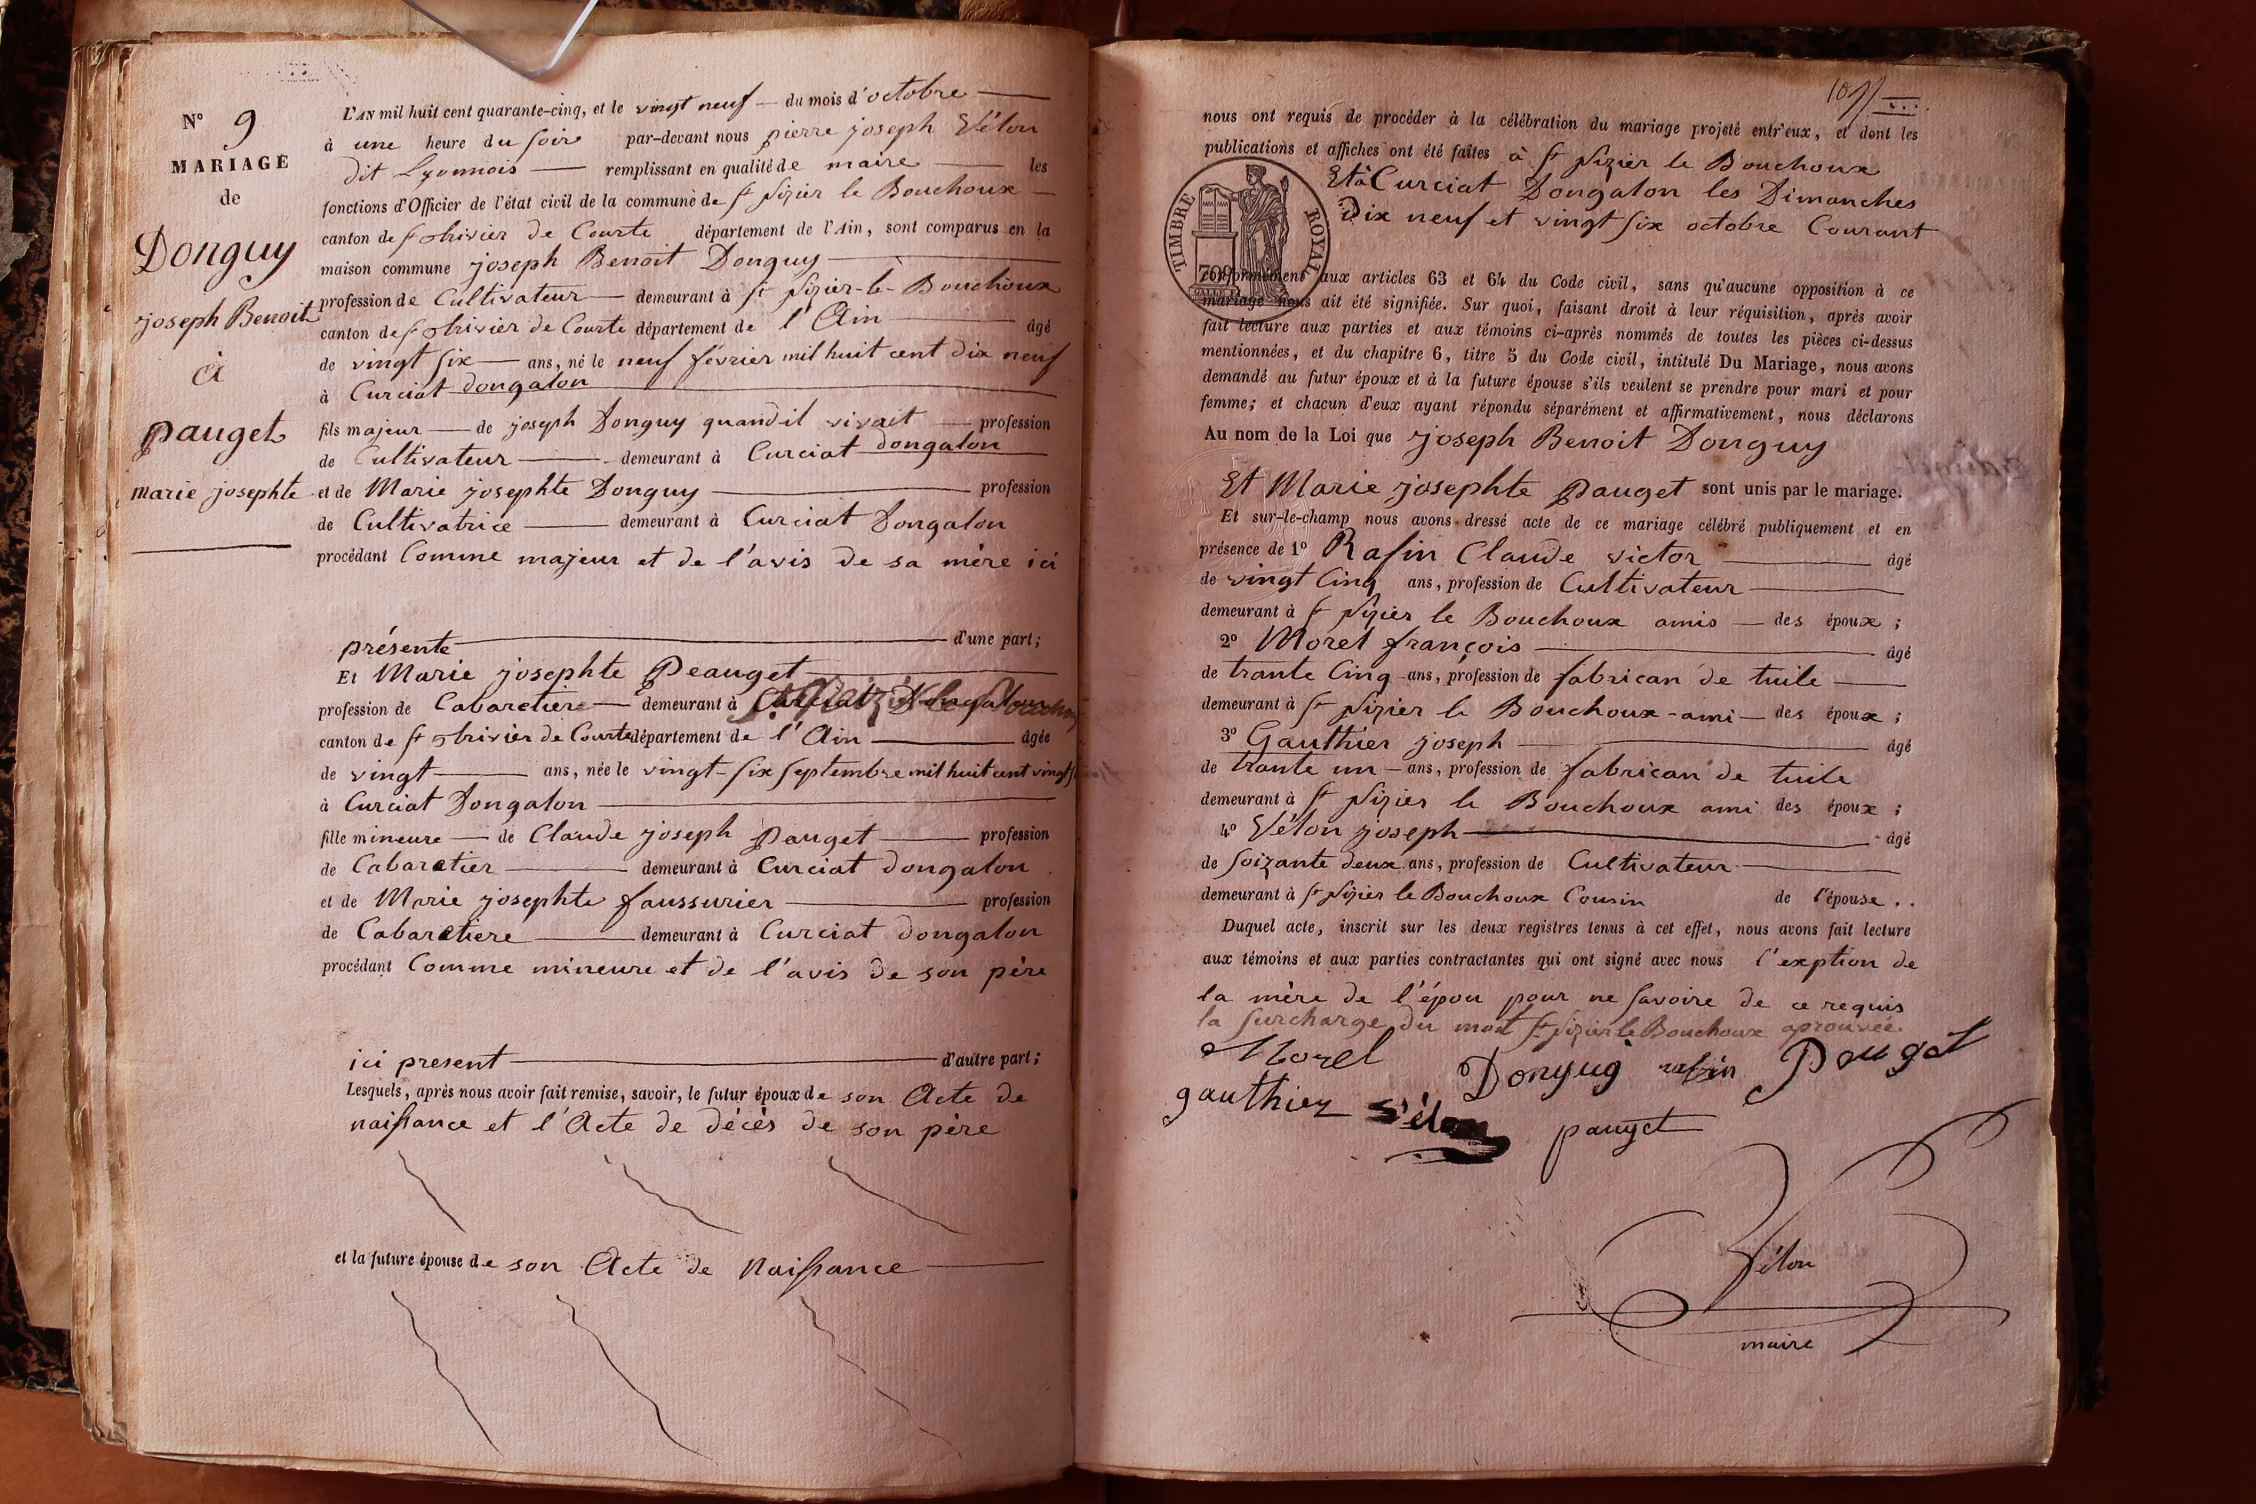 N° 9
MARIAGE
de
Donguy
joseph Benoit
à
pauget
marie josephte
L'AN mil huit cent quarante-cinq, et le vingt neuf du mois d'octobre
à une heure du soir par-devant nous pierre joseph Vélon
dit Lyonnois remplissant en qualité de maire les
fonctions d'Officier de l'état civil de la commune de St Nizier le Bouchoux
canton de St trivier de Courte département de l'Ain, sont comparus en la
maison commune joseph Benoit Donguy
profession de Cultivateur demeurant à St Nizier-le-Bouchoux
canton de St trivier de Courte département de l'Ain âgé
de vingt six ans, né le neuf février mil huit cent dix neuf
à Curciat dongalon
fils majeur de joseph Donguy quand il vivait profession
de Cultivateur demeurant à Curciat dongalon
et de Marie josephte Donguy profession
de Cultivatrice demeurant à Curciat Dongalon
procédant Comme majeur et de l'avis de sa mère ici
présente d'une part;
Et Marie josephte Peauget
profession de Cabaretière demeurant à
canton de St trivier de Courte département de l'Ain âgée
de vingt ans, née le vingt-six septembre mil huit cent vingt
à Curciat Dongalon
fille mineure de Claude joseph Pauget profession
de Cabaretier demeurant à Curciat dongalon
et de Marie josephte faussurier profession
de Cabaretiere demeurant à Curciat dongalon
procédant Comme mineure et de l'avis de son père
ici present d'autre part;
Lesquels, après nous avoir fait remise, savoir, le futur époux de son Acte de
naissance et l'Acte de décès de son père
et la future épouse de son Acte de Naissance
nous ont requis de procéder à la célébration du mariage projeté entr'eux, et dont les
publications et affiches ont été faites à St Nizier le Bouchoux
Et à Curciat Dongalon les Dimanches
Dix neuf et vingt six octobre Courant
TIMBRE ROYAL
conformément aux articles 63 et 64 du Code civil, sans qu'aucune opposition à ce
mariage nous ait été signifiée. Sur quoi, faisant droit à leur réquisition, après avoir
fait lecture aux parties et aux témoins ci-après nommés de toutes les pièces ci-dessus
mentionnées, et du chapitre 6, titre 5 du Code civil, intitulé Du Mariage, nous avons
demandé au futur époux et à la future épouse s'ils veulent se prendre pour mari et pour
femme; et chacun d'eux ayant répondu séparément et affirmativement, nous déclarons
Au nom de la Loi que joseph Benoit Donguy
Et Marie josephte pauget sont unis par le mariage.
Et sur-le-champ nous avons dressé acte de ce mariage célébré publiquement et en
présence de 1° Rafin Claude victor âgé
de vingt Cinq ans, profession de Cultivateur
demeurant à St Nizier le Bouchoux amis des époux;
2° Morel françois âgé
de trante Cinq ans, profession de fabrican de tuile
demeurant à St Nizier le Bouchoux ami des époux;
3° Gauthier joseph âgé
de trante un ans, profession de fabrican de tuile
demeurant à St Nizier le Bouchoux ami des époux;
4° Vélon joseph âgé
de soizante deux ans, profession de Cultivateur
demeurant à St Nizier le Bouchoux Cousin de l'épouse..
Duquel acte, inscrit sur les deux registres tenus à cet effet, nous avons fait lecture
aux témoins et aux parties contractantes qui ont signé avec nous l'exption de
la mère de l'épou pour ne savoire de ce requis
la surcharge du mot St Nizier le Bouchoux aprouvée.
Morel Donguy rafin Pauget
gauthier Vélon pauget
Vélon
maire